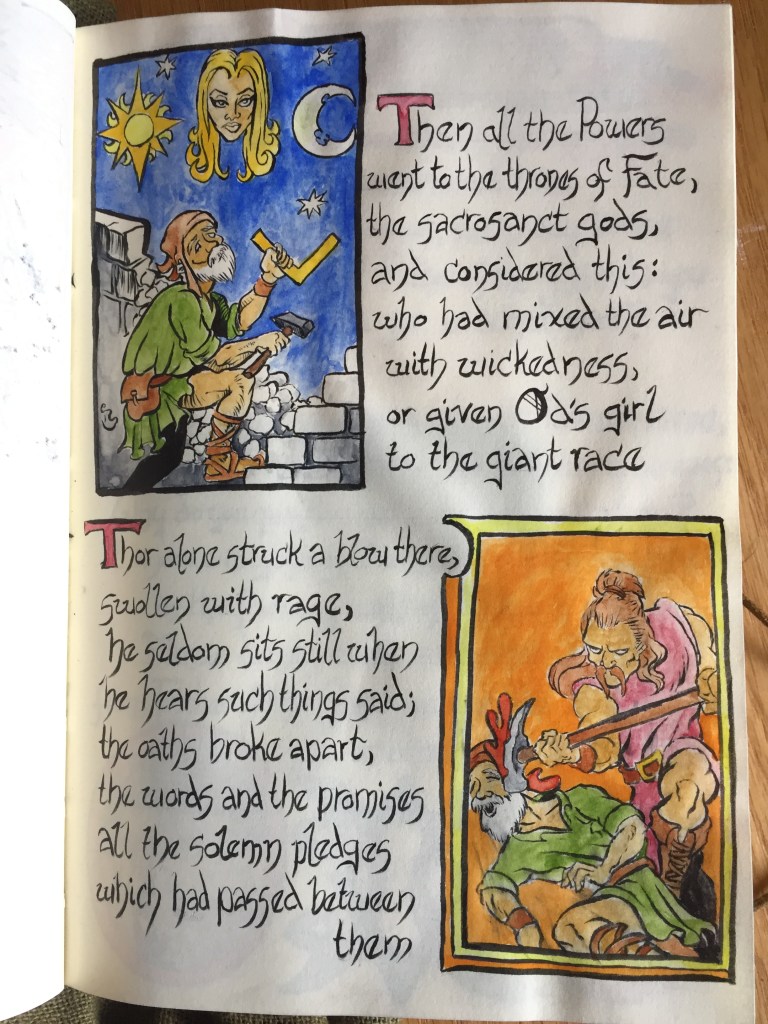 Then all the Powers
went to the thrones of Fate,
the sacrosanct gods,
and considered this:
who had mixed the air
with wickedness,
or given Od's girl
to the giant race
Thor alone struck a blow there,
swollen with rage,
he seldom sits still when
he hears such things said;
the oaths broke apart,
the words and the promises
all the solemn pledges
which had passed between
them